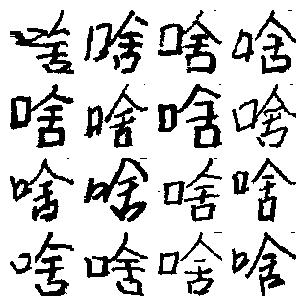 啥啥啥啥
啥啥啥啥
啥啥啥啥
啥啥啥啥